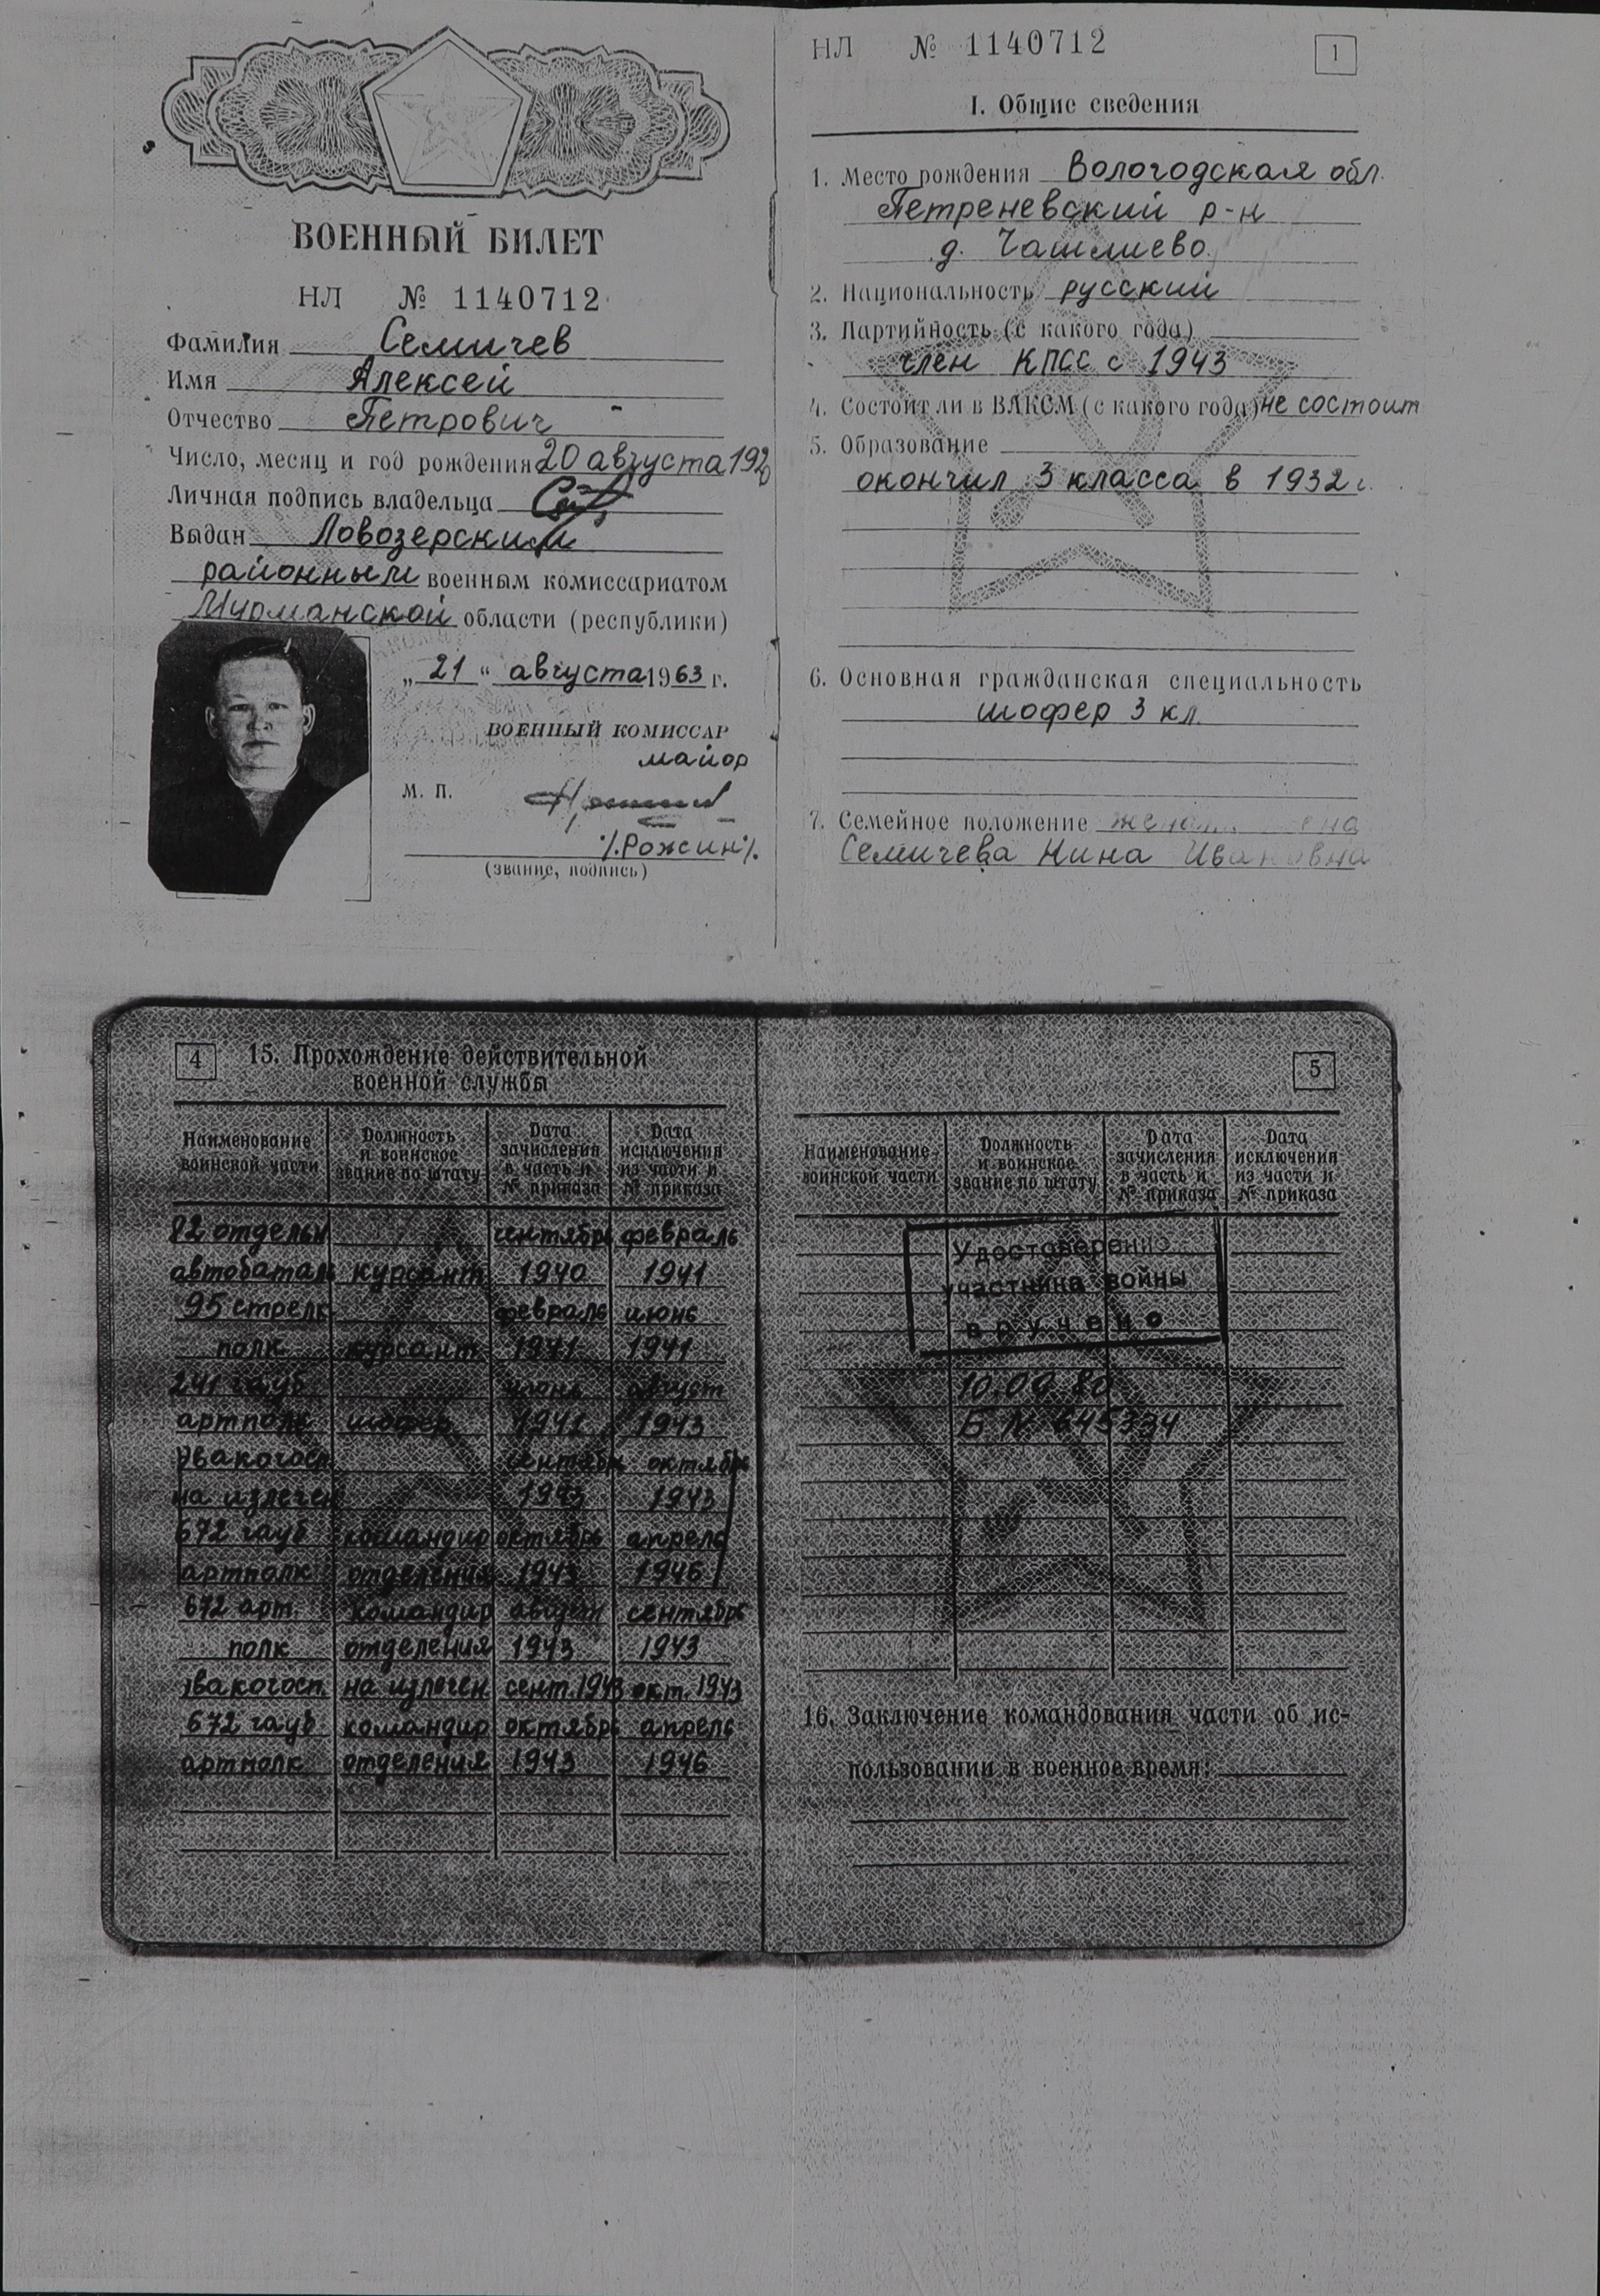 ВОЕННЫЙ БИЛЕТ
НЛ № 1140712
Фамилия Семичев
Имя Алексей
Отчество Петрович
Число, месяц и год рождения 20 августа 1920
Личная подпись владельца
Выдан Ловозерским
районным военным комиссариатом
Мурманской области (республики)
„21“ августа 1963 г.
ВОЕННЫЙ КОМИССАР
майор
М. П.
/Рожсин/
(звание, подпись)
НЛ № 1140712
1
I. Общие сведения
1. Место рождения Вологодская обл.
Петреневский р-н
д. Чашмиево
2. Национальность русский
3. Партийность (с какого года)
член КПСС с 1943
4. Состоит ли в ВЛКСМ (с какого года) не состоит
5. Образование
окончил 3 класса в 1932 г.
6. Основная гражданская специальность
шофер 3 кл.
7. Семейное положение
Семичева Нина Ивановна
4
15. Прохождение действительной
военной службы
Наименование воинской части
Должность и воинское звание по штату
Дата зачисления в часть и № приказа
Дата исключения из части и № приказа
82 отдельн сентябрь февраль
автобаталь курсант 1940 1941
95 стрелк февраль июнь
полк курсант 1941 1941
241 гауб июнь август
артполк шофер 1941 1943
эвакогосп сентябрь октябрь
на излечен 1943 1943
672 гауб командир октябрь апрель
артполк отделения 1943 1946
672 арт. командир август сентябрь
полк отделения 1943 1943
эвакогосп на излечен сент. 1943 окт. 1943
672 гауб командир октябрь апрель
артполк отделения 1943 1946
5
Наименование воинской части
Должность и воинское звание по штату
Дата зачисления в часть и № приказа
Дата исключения из части и № приказа
Удостоверение
участника войны
вручено
10.09 80
Б N 645334
16. Заключение командования части об ис-
пользовании в военное время: